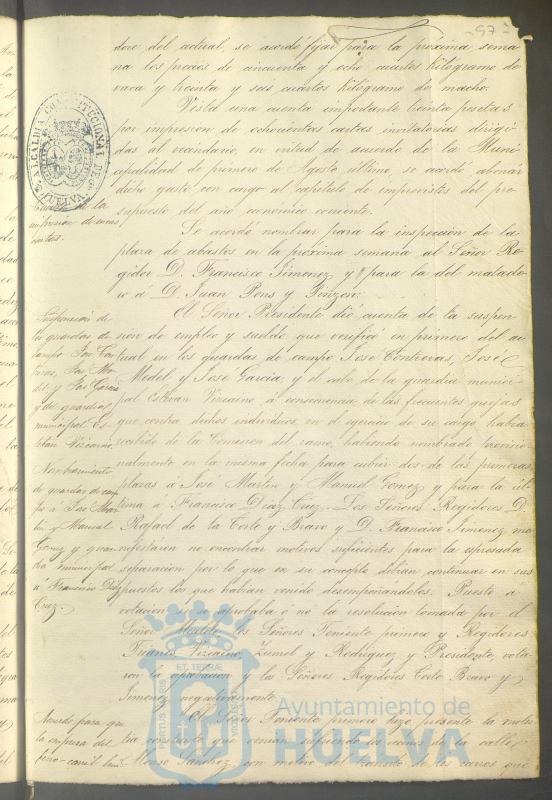 97
dero del actual, se acordó fijar para la próxima sema
na los precios de cincuenta y ocho cuartos kilógramo de
vaca y treinta y seis cuartos kilógramo de macho.
Vista una cuenta importante treinta pesetas
por impresion de ochocientas cartas invitatorias dirigi
das al vecindario, en virtud de acuerdo de la Muni
cipalidad de primero de Agosto último, se acordó abonar
dicho gasto con cargo al capítulo de imprevistos del pre
supuesto del año económico corriente.
Se acordó nombrar para la inspeccion de la
plaza de abastos en la próxima semana al Señor Re
gidor D. Francisco Jimenez y para la del matade
ro á D. Juan Pons y Pinzon.
El Señor Presidente dió cuenta de la suspen
sion de empleo y sueldo que verificó en primero del ac
tual en los guardas de campo José Contreras, José
Medel y José Garcia, y el cabo de la guardia munici
pal Esteban Vizcaino, á consecuencia de las frecuentes quejas
que contra dichos individuos, en el egercicio de su cargo, habia
recibido de la Comision del ramo, habiendo nombrado provisio
nalmente en la misma fecha para cubrir dos de las primeras
plazas á José Martin y Manuel Gomez y para la úl
tima á Francisco Diaz Cruz. Los Señores Regidores D.
Rafael de la Corte y Bravo y D. Francisco Jimenez ma
nifestaron no encontrar motivos suficientes para la espresada
separacion por lo que en su concepto debian continuar en sus
puestos los que habian venido desempeñandolos. Puesto á
votacion si se aprobaba ó no la resolucion tomada por el
Señor Alcalde, los Señores Teniente primero y Regidores
Vizcaino, y Rodriguez y Presidente, vota
ron la aprobacion y los Señores Regidores Corte Bravo y
Jimenez negativamente.
El Señor Teniente primero hizo presente la
que venian sufriendo los vecinos de la calle
Alonso Sanchez, con motivo del tránsito de los carros que
ALCALDIA CONSTITUCIONAL DE
HUELVA
la
impresion de
cartas.
Suspension de
los guardas de
campo José Con
treras, José Me
del y José Garcia
y de guardia
municipal Es
teban Vizcaino.
Nombramiento
de guardas de cam
po á José Mar
tin y Manuel
Gomez y guar
dia municipal
á Francisco Diaz
Cruz.
Acuerdo para que
la empresa del
ferro-carril
ET TERRÆ
PORTUS MARIS
CUSTODIA
Ayuntamiento de
HUELVA